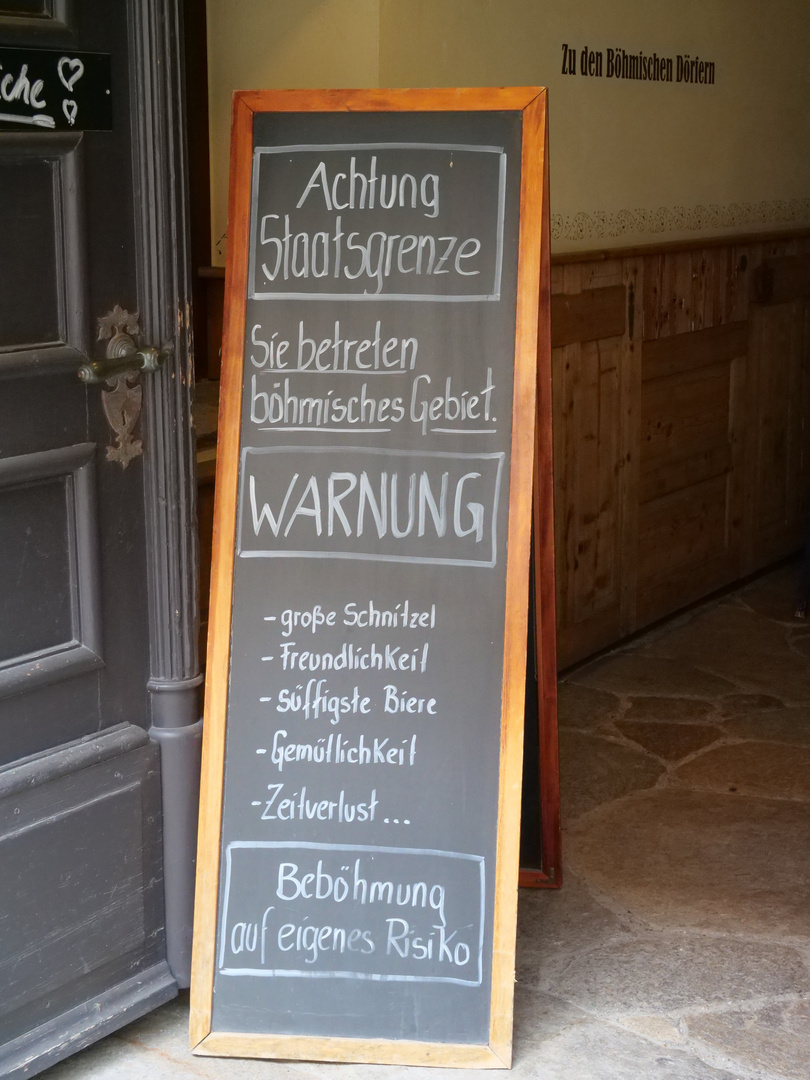 Zu den Böhmischen Dörfern
Achtung
Staatsgrenze
Sie betreten
böhmisches Gebiet.
WARNUNG
- große Schnitzel
- Freundlichkeit
- süffigste Biere
- Gemütlichkeit
- Zeitverlust...
Beböhmung
auf eigenes Risiko